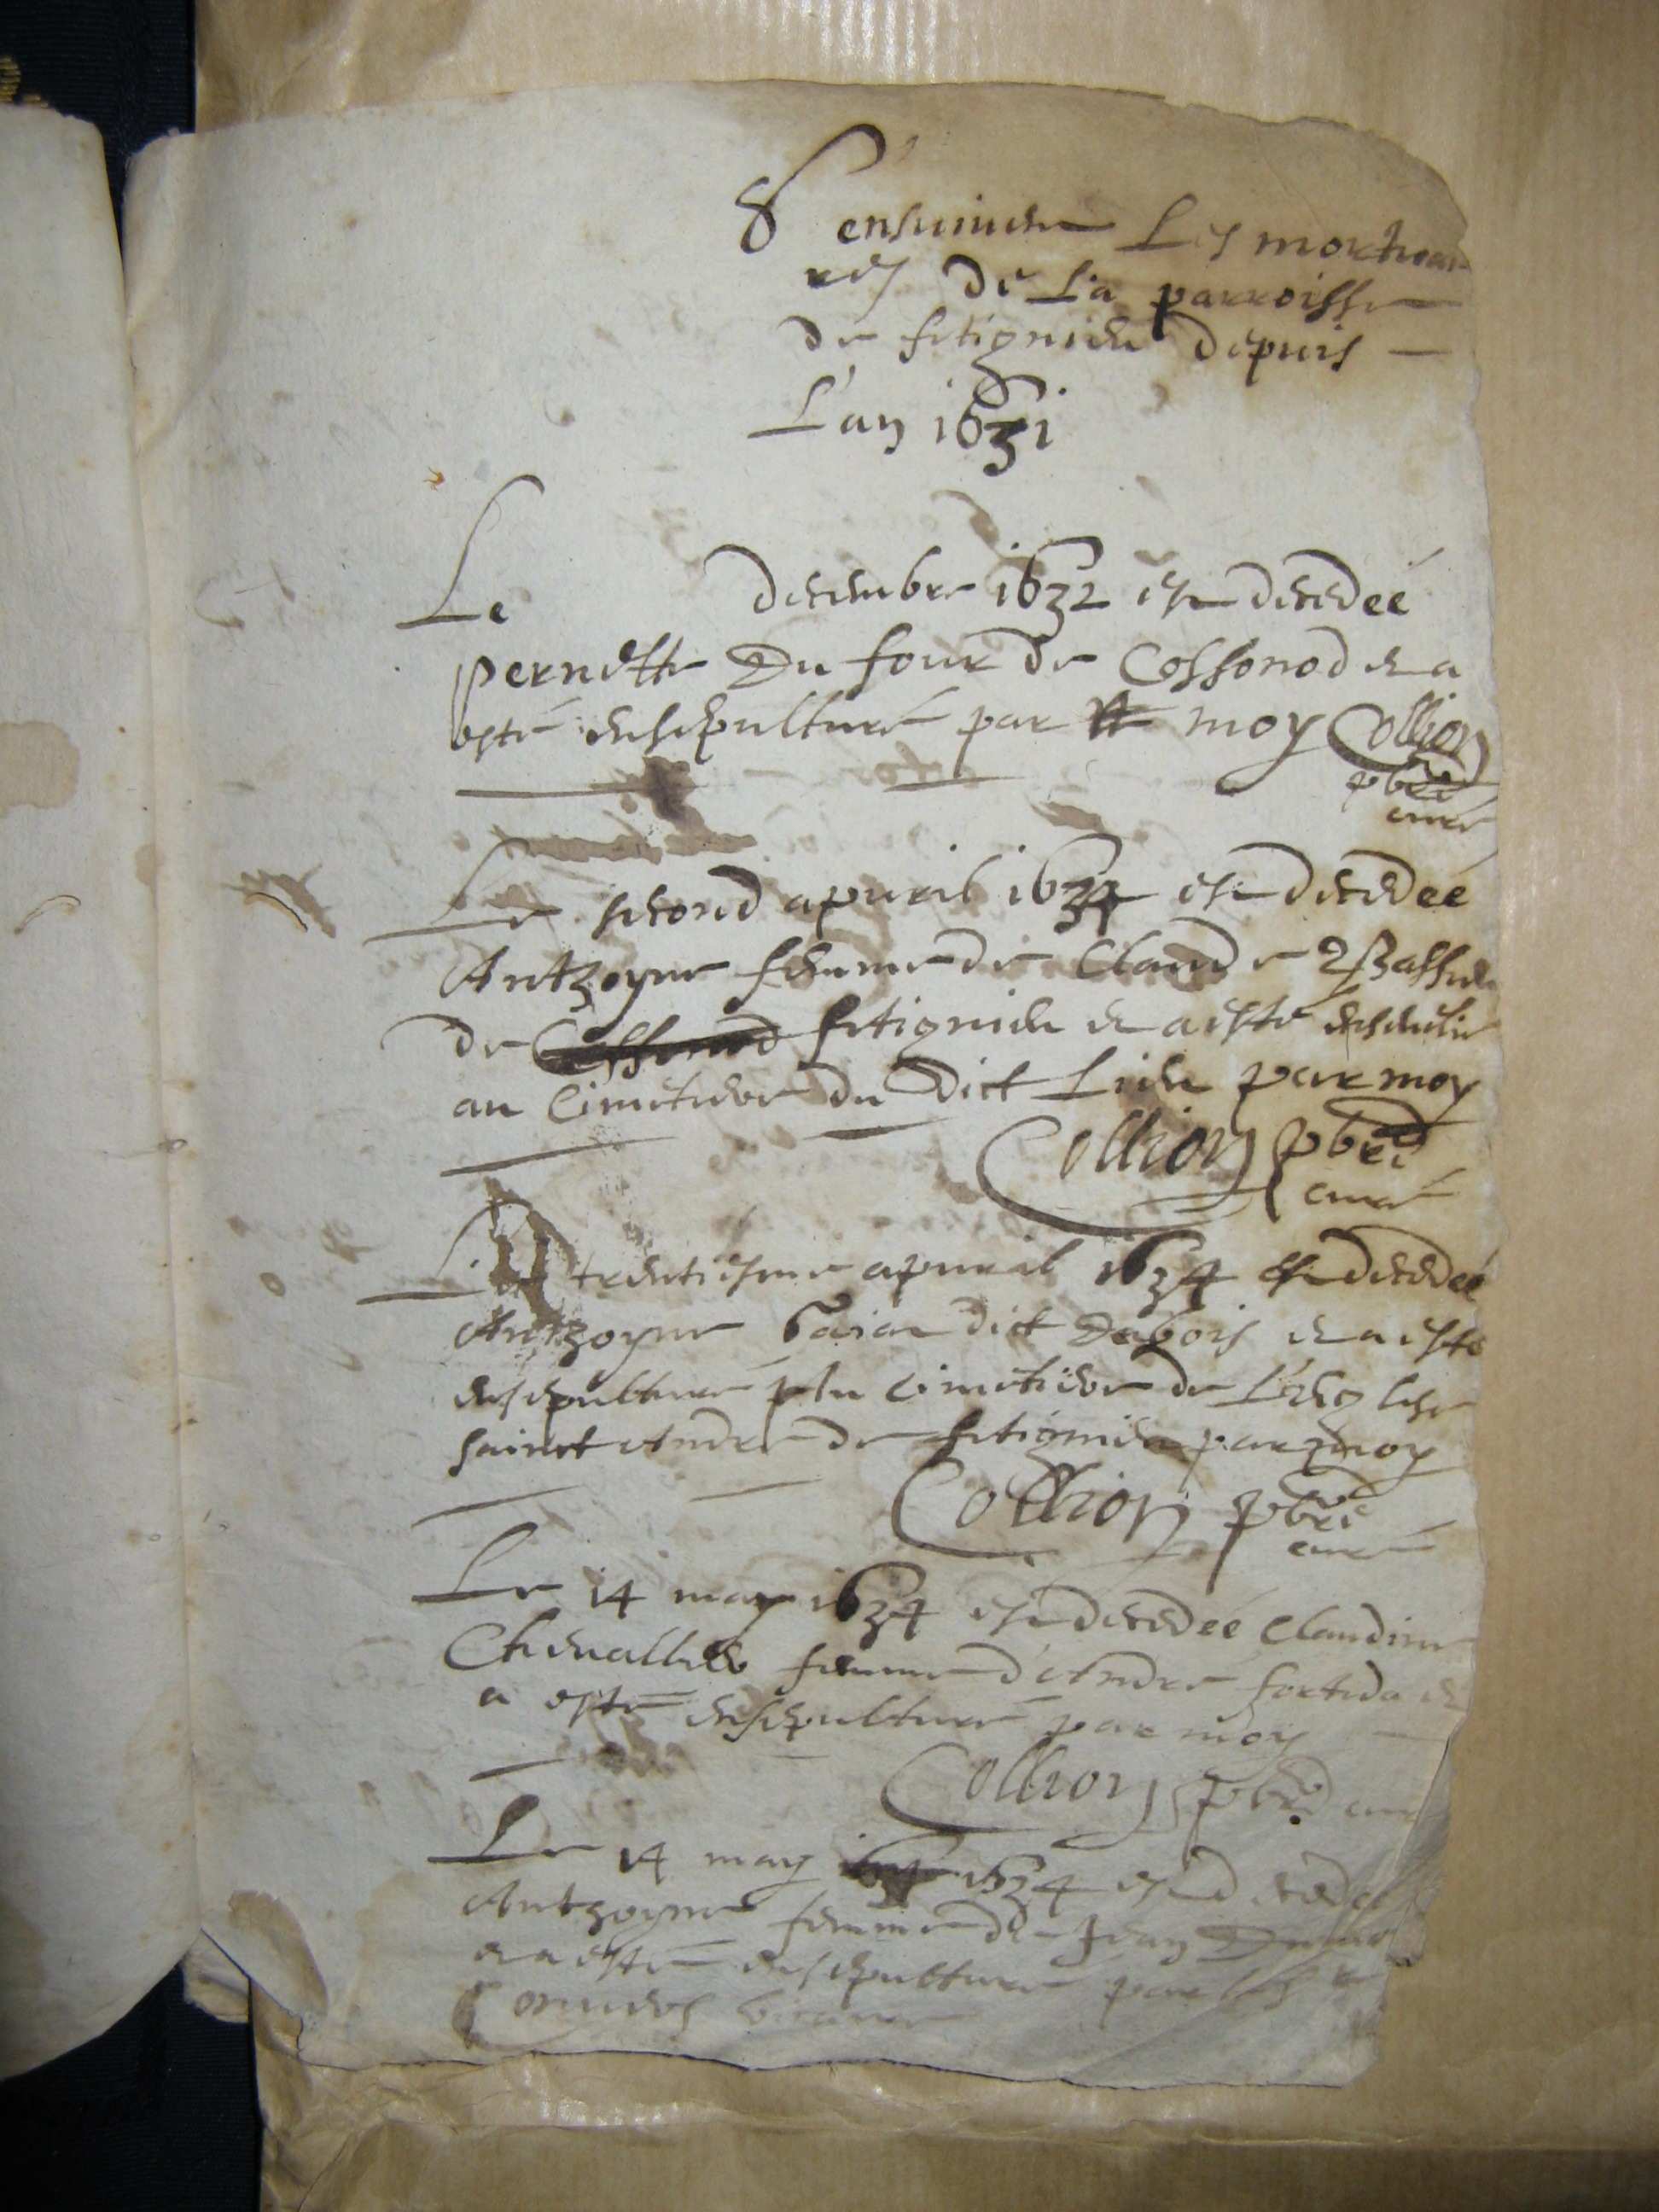 S ensuivent Les mortuai
res de La parroisse
de fitignieu depuis
L'an 1631
Le decembre 1632 est decedeé
pernette Du four de Cossonod et a
esté ensepulturé par moy Collion
pbre
curé
Le second apuril 1634 est decedeé
Antzoyne femme de Claude
de Cossonod fitignieu et a esté ensevelie
au Cimetiere du dict Lieu par moy
Collion pbre
curé
Le trentiesme apuril 1634 est decedeé
Antzoyne dict Dubois et a esté
ensepulturé au Cimetiere de L'eeglise
sainct Andre de fitignieu par moy
Collion pbre
curé
Le 14 may 1634 est decedeé Claudine
Chevallier femme d'Andre et
a esté ensepulturé par moy
Collion pbre cure
Le 14 may 1634 est decedeé
Antzoyne femme de Jean
et a esté ensepulturé par
vicaire